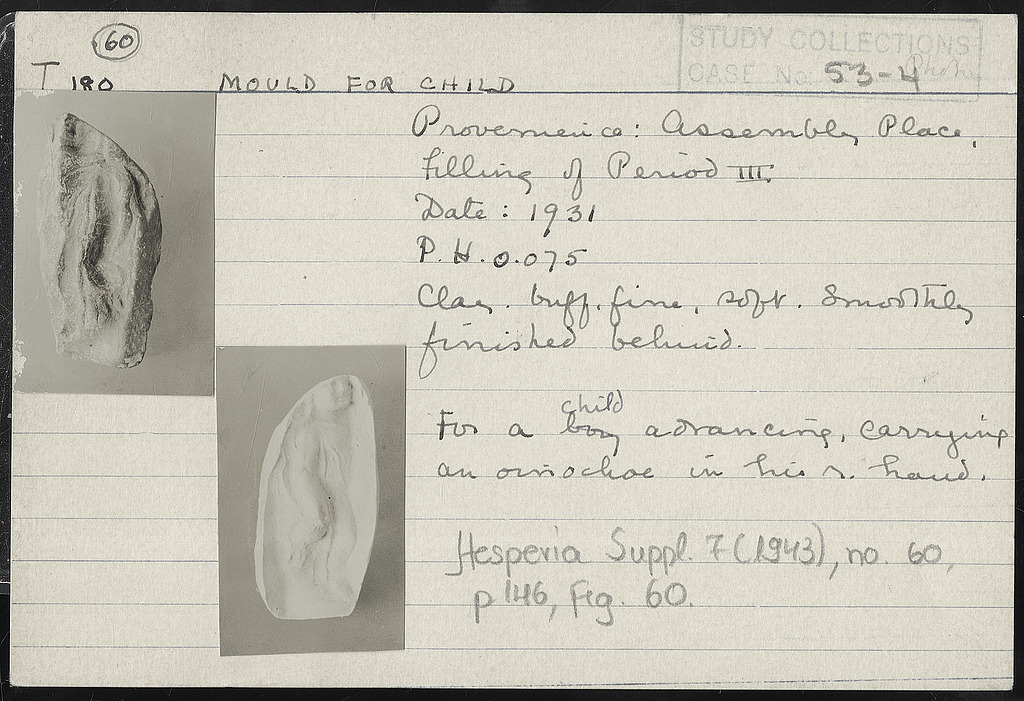 60
STUDY COLLECTIONS
CASE No. 53-4
Photo
T 180 MOULD FOR CHILD
Provenience: Assembly Place,
filling of Period III.
Date: 1931
P.H. 0.075
Clay. buff, fine, soft. Smoothly
finished behind.
child
For a boy advancing, carrying
an oinochoe in his r. hand.
Hesperia Suppl. 7 (1943), no. 60,
p 146, fig. 60.